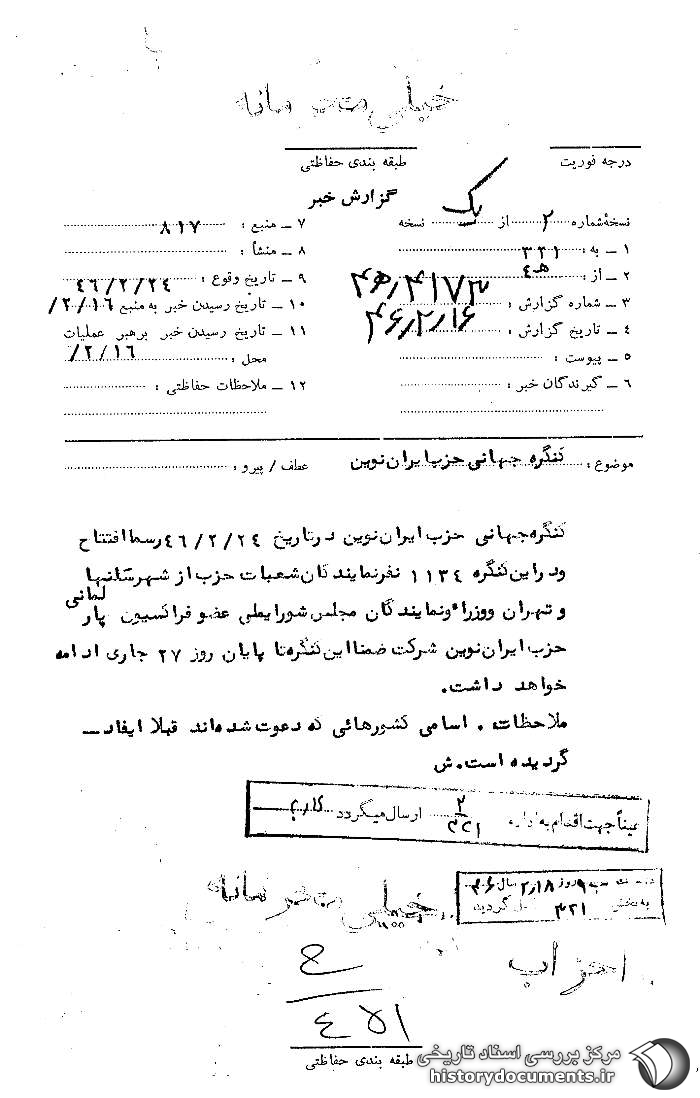 خیلی محرمانه
درجه فوریت
طبقه بندی حفاظتی
گزارش خبر
نسخهٔ شماره ۲ از یک نسخه
۱ ـ به : ۳۲۱
۲ ـ از : ۴ه‍
۳ ـ شماره گزارش : ۴ه‍/۴۱۷۳
۴ ـ تاریخ گزارش : ۴۶/۲/۱۶
۵ ـ پیوست :
۶ ـ گیرندگان خبر :
۷ ـ منبع : ۸۱۷
۸ ـ منشأ :
۹ ـ تاریخ وقوع : ۴۶/۲/۲۴
۱۰ ـ تاریخ رسیدن خبر به منبع ۲/۱۶/
۱۱ ـ تاریخ رسیدن خبر برهبر عملیات
محل : ۲/۱۶/
۱۲ ـ ملاحظات حفاظتی :
موضوع : کنگره جهانی حزب ایران نوین
عطف / پیرو :
کنگره جهانی حزب ایران نوین در تاریخ ۴۶/۲/۲۴ رسما افتتاح
و در این کنگره ۱۱۳۴ نفر نمایندگان شعبات حزب از شهرستانها
و تهران و وزراء و نمایندگان مجلس شورایملی عضو فراکسیون پارلمانی
حزب ایران نوین شرکت ضمنا این کنگره تا پایان روز ۲۷ جاری ادامه
خواهد داشت.
ملاحظات . اسامی کشورهائی که دعوت شده اند قبلا ایفاد ـ
گردیده است. ش
عیناً جهت اقدام به اداره ۲/۳۲۱ ارسال میگردد
روز ۲/۱۸ سال ۴۶
به بخش ۳۲۱ گردید
خیلی محرمانه
احزاب
ح
۴۵۱
طبقه بندی حفاظتی
مرکز بررسی اسناد تاریخی
historydocuments.ir